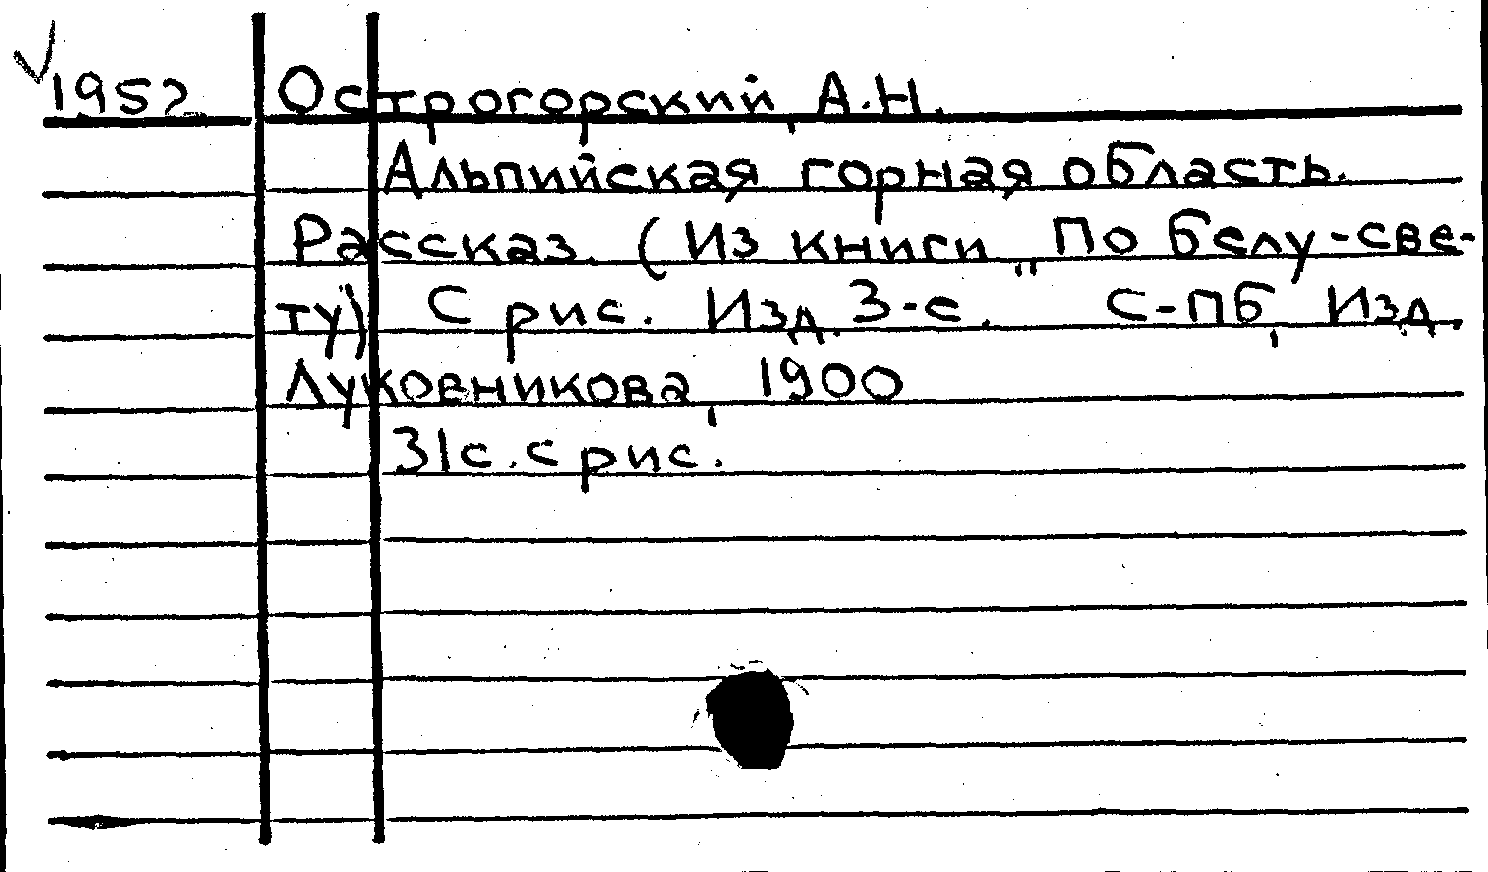 1952 Острогорский, А.Н.
Альпийская горная область.
Рассказ. (Из книги „По белу-све-
ту) С рис. Изд. 3-е. С-пб, Изд.
Луковникова, 1900
31с. с рис.